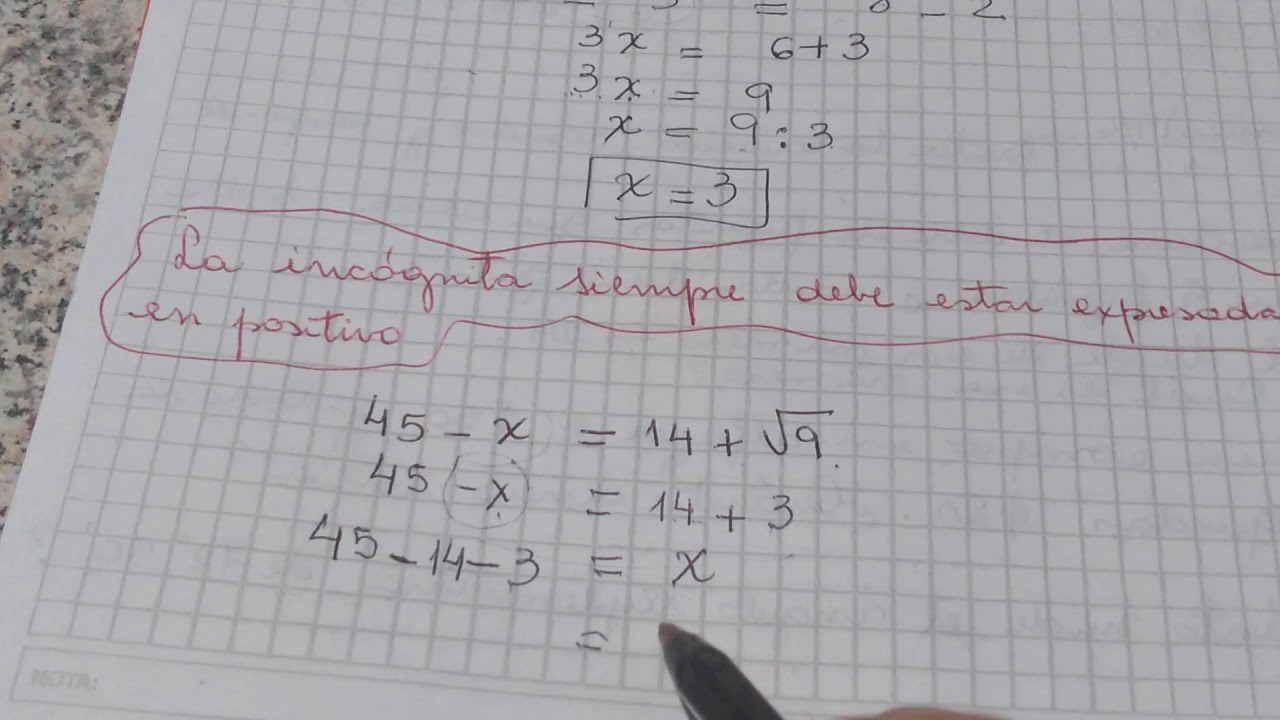 3x = 6+3
3x = 9
x = 9:3
x = 3
La incógnita siempre debe estar expresada
en positivo
45 - x = 14 + √9
45 - x = 14 + 3
45 - 14 - 3 = x
=
NOTA: